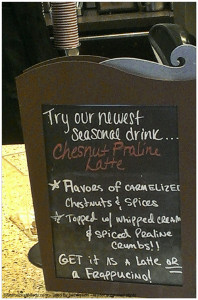 Try our newest
seasonal drink...
Chesnut Praline
Latte
Flavors of CARMELIZED
Chestnuts & Spices
Topped w/ whipped cream
& Spiced Praline
Crumbs!!
GET it AS A Latte OR
a FRAPPUCINO!